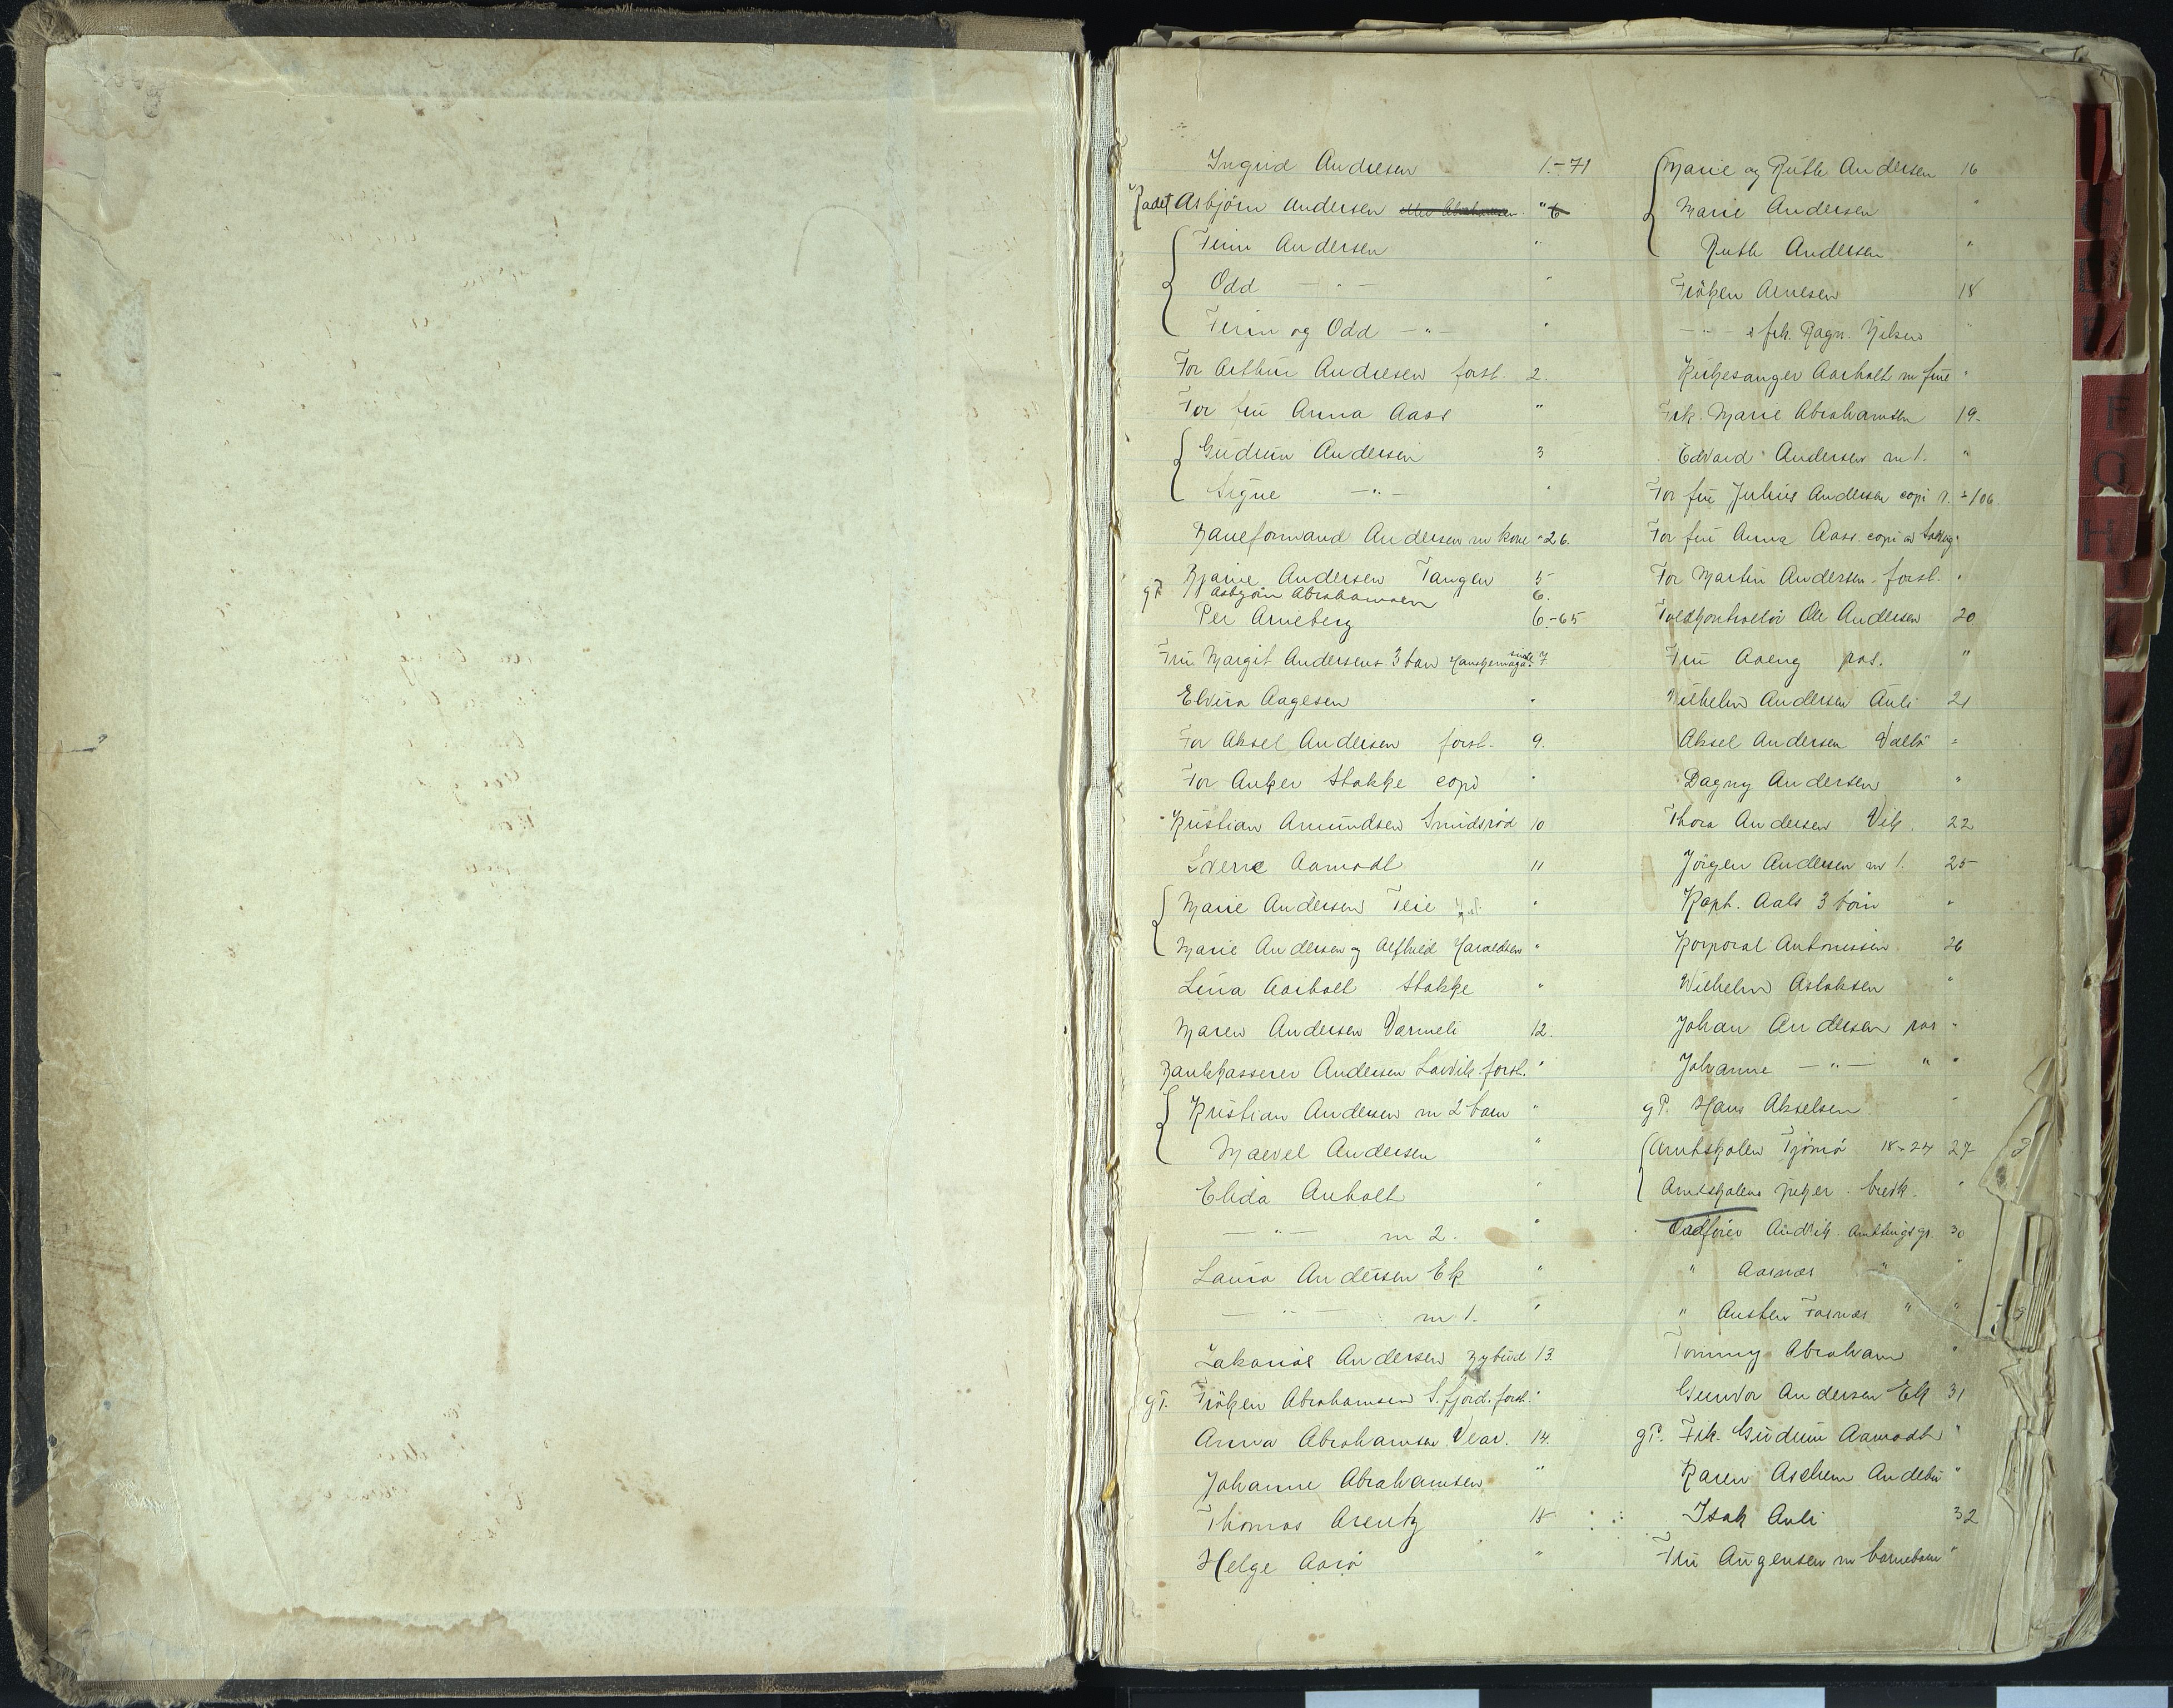 Ingrid Andresen 1.-71
Kadet Asbjørn Andersen " 6
Finn Andersen "
Odd - " - "
Finn og Odd - " - "
For Arthur Andresen forst. 2.
For fru Anna Aass "
Gudrun Andersen 3
Signe - " - "
Baneformand Andersen m kone " 26.
Bjarne Andersen Tangen 5
gP. Asbjørn Abrahamsen 6.
Per Arneberg 6.-65
Fru Margit Andersens 3 barn 7
Elvira Aagesen "
For Aksel Andersen forst. 9.
For Anker Stokke copi "
Kristian Amundsen Smidsrød 10
Sverre Aamodt 11
Marie Andersen Teie "
Marie Andersen og Alfhild Haraldsen "
Lina Aarholt Stokke "
Maren Andersen Varmeli 12.
Bankkasserer Andersen Larvik forst. "
Kristian Andersen m 2 barn "
Marvel Andersen "
Elida Anholt "
- " - m 2. "
Laura Andersen Ek "
- " - m 1. "
Zakarias Andersen Nybrud 13.
gP. Frøken Abrahamsen S.fjord. forst. "
Anna Abrahamsen Vear. 14.
Johanne Abrahamsen "
Thomas Arentz 15
Helge Aarø "
Marie og Ruth Andersen 16
Marie Andersen "
Ruth Andersen "
Frøken Arnesen 18
- " - & frk. Ragn. Nilsen "
Kirkesanger Aarholt m frue "
Frk. Marie Abrahamsen 19.
Edvard Andersen m 1. "
For fru Julius Andersen copi 1. " 106.
For fru Anna Aass. copi av "
For Martin Andersen forst. "
Toldkontrolør Ole Andersen 20
Fru Aaeng pas. "
Wilhelm Andersen Auli 21
Aksel Andersen Vallø "
Dagny Andersen "
Thora Andersen Vik. 22
Jørgen Andersen m 1. 25
Kapt. Aals 3 børn "
Korporal Antonissen 26
Wilhelm Aslaksen "
Johan Andersen pas "
Johanne - " - " "
gP. Hans Akselsen "
Amtskolen Tjømø 18-24 27
Amtskolens piker. brevk. "
Ordfører Andvik Amtstingsgr. 30
" Aasnæs " "
" Austen Fornæs " "
Tommy Abraham "
Gunvor Andersen Ek 31
gP. Frk. Gudrun Aamodt "
Karen Aschem Andebu "
Isak Auli 32
Fru Augensen m barnebarn "
F
H